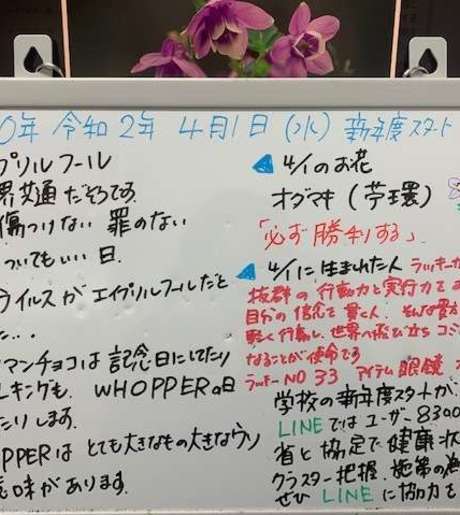 0年 令和2年 4月1日 (水) 新年度スタート
プリルフール
界共通だそうです。
傷つけない 罪のない
ついてもいい日。
ウイルスがエイプリルフールだと
た...
マンチョコは記念日にしてたり
ーキングも、WHOPPERの日
たりします。
OPPERは とても大きなもの大きなウソ
意味があります。
4/1のお花
オダマキ (苧環)
「必ず勝利する」
4/1に生まれた人 ラッキーカ
抜群の行動力と実行力
自分の信念を貫く人 そんな貴方
軽く行動し、世界へ飛び立ち コミ
なることが使命です
ラッキーNO 33 アイテム 眼鏡
学校の新年度スタートが
LINEではユーザー8300
省と協定で健康状
クラスター把握、施策の為
ぜひ LINEに協力を